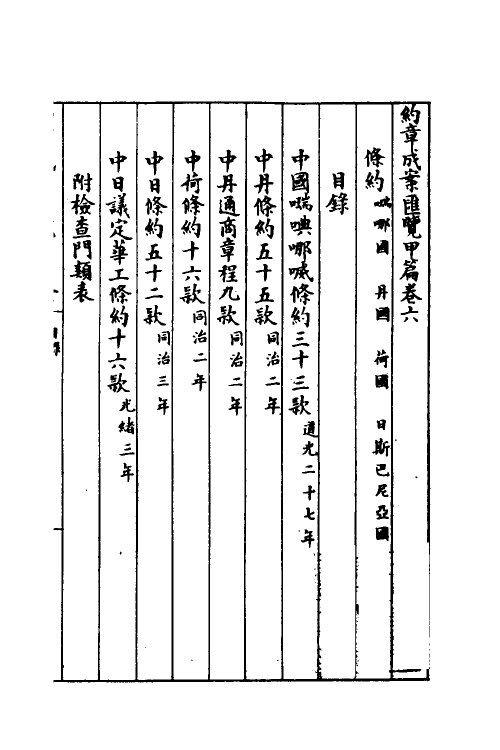 約章成案匯覽甲篇卷六
條約 㗨哪國 丹國 荷國 日斯巴尼亞國
目錄
中國㗨㖿哪喴條約三十三款 道光二十七年
中丹條約五十五款 同治二年
中丹通商章程九款 同治二年
中荷條約十六款 同治二年
中日條約五十二款 同治三年
中日議定華工條約十六款 光緒三年
附檢查門類表